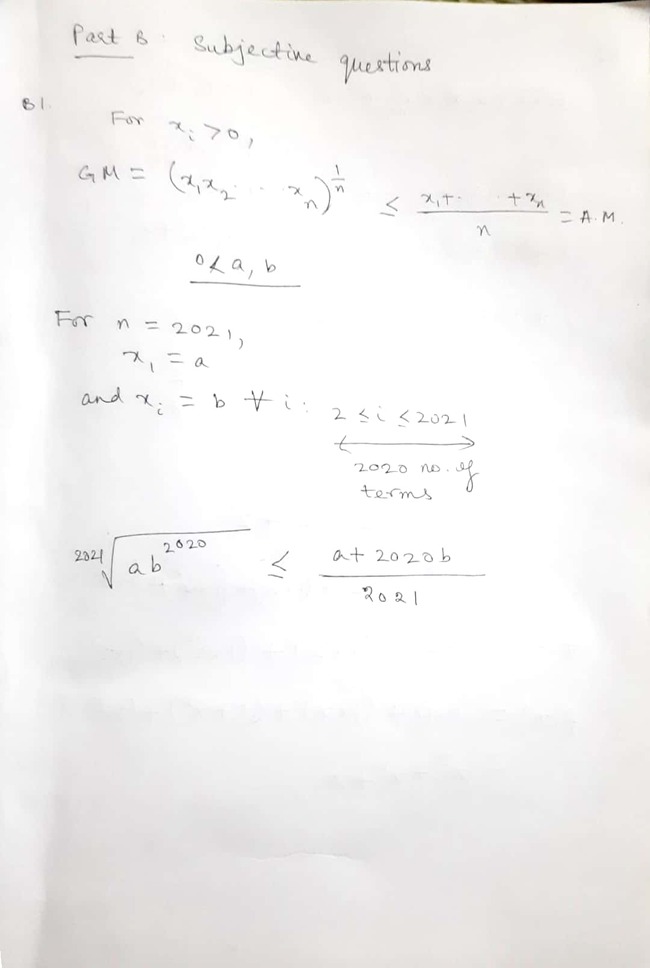 Part B. Subjective questions
B1.
For xᵢ > 0,
GM = (x₁x₂ . . . xₙ)^(1/n) ≤ (x₁ + . . . + xₙ)/n = A.M.
0 < a, b
For n = 2021,
x₁ = a
and xᵢ = b ∀ i : 2 ≤ i ≤ 2021
2020 no. of
terms
²⁰²¹√(ab²⁰²⁰) ≤ (a + 2020b)/2021